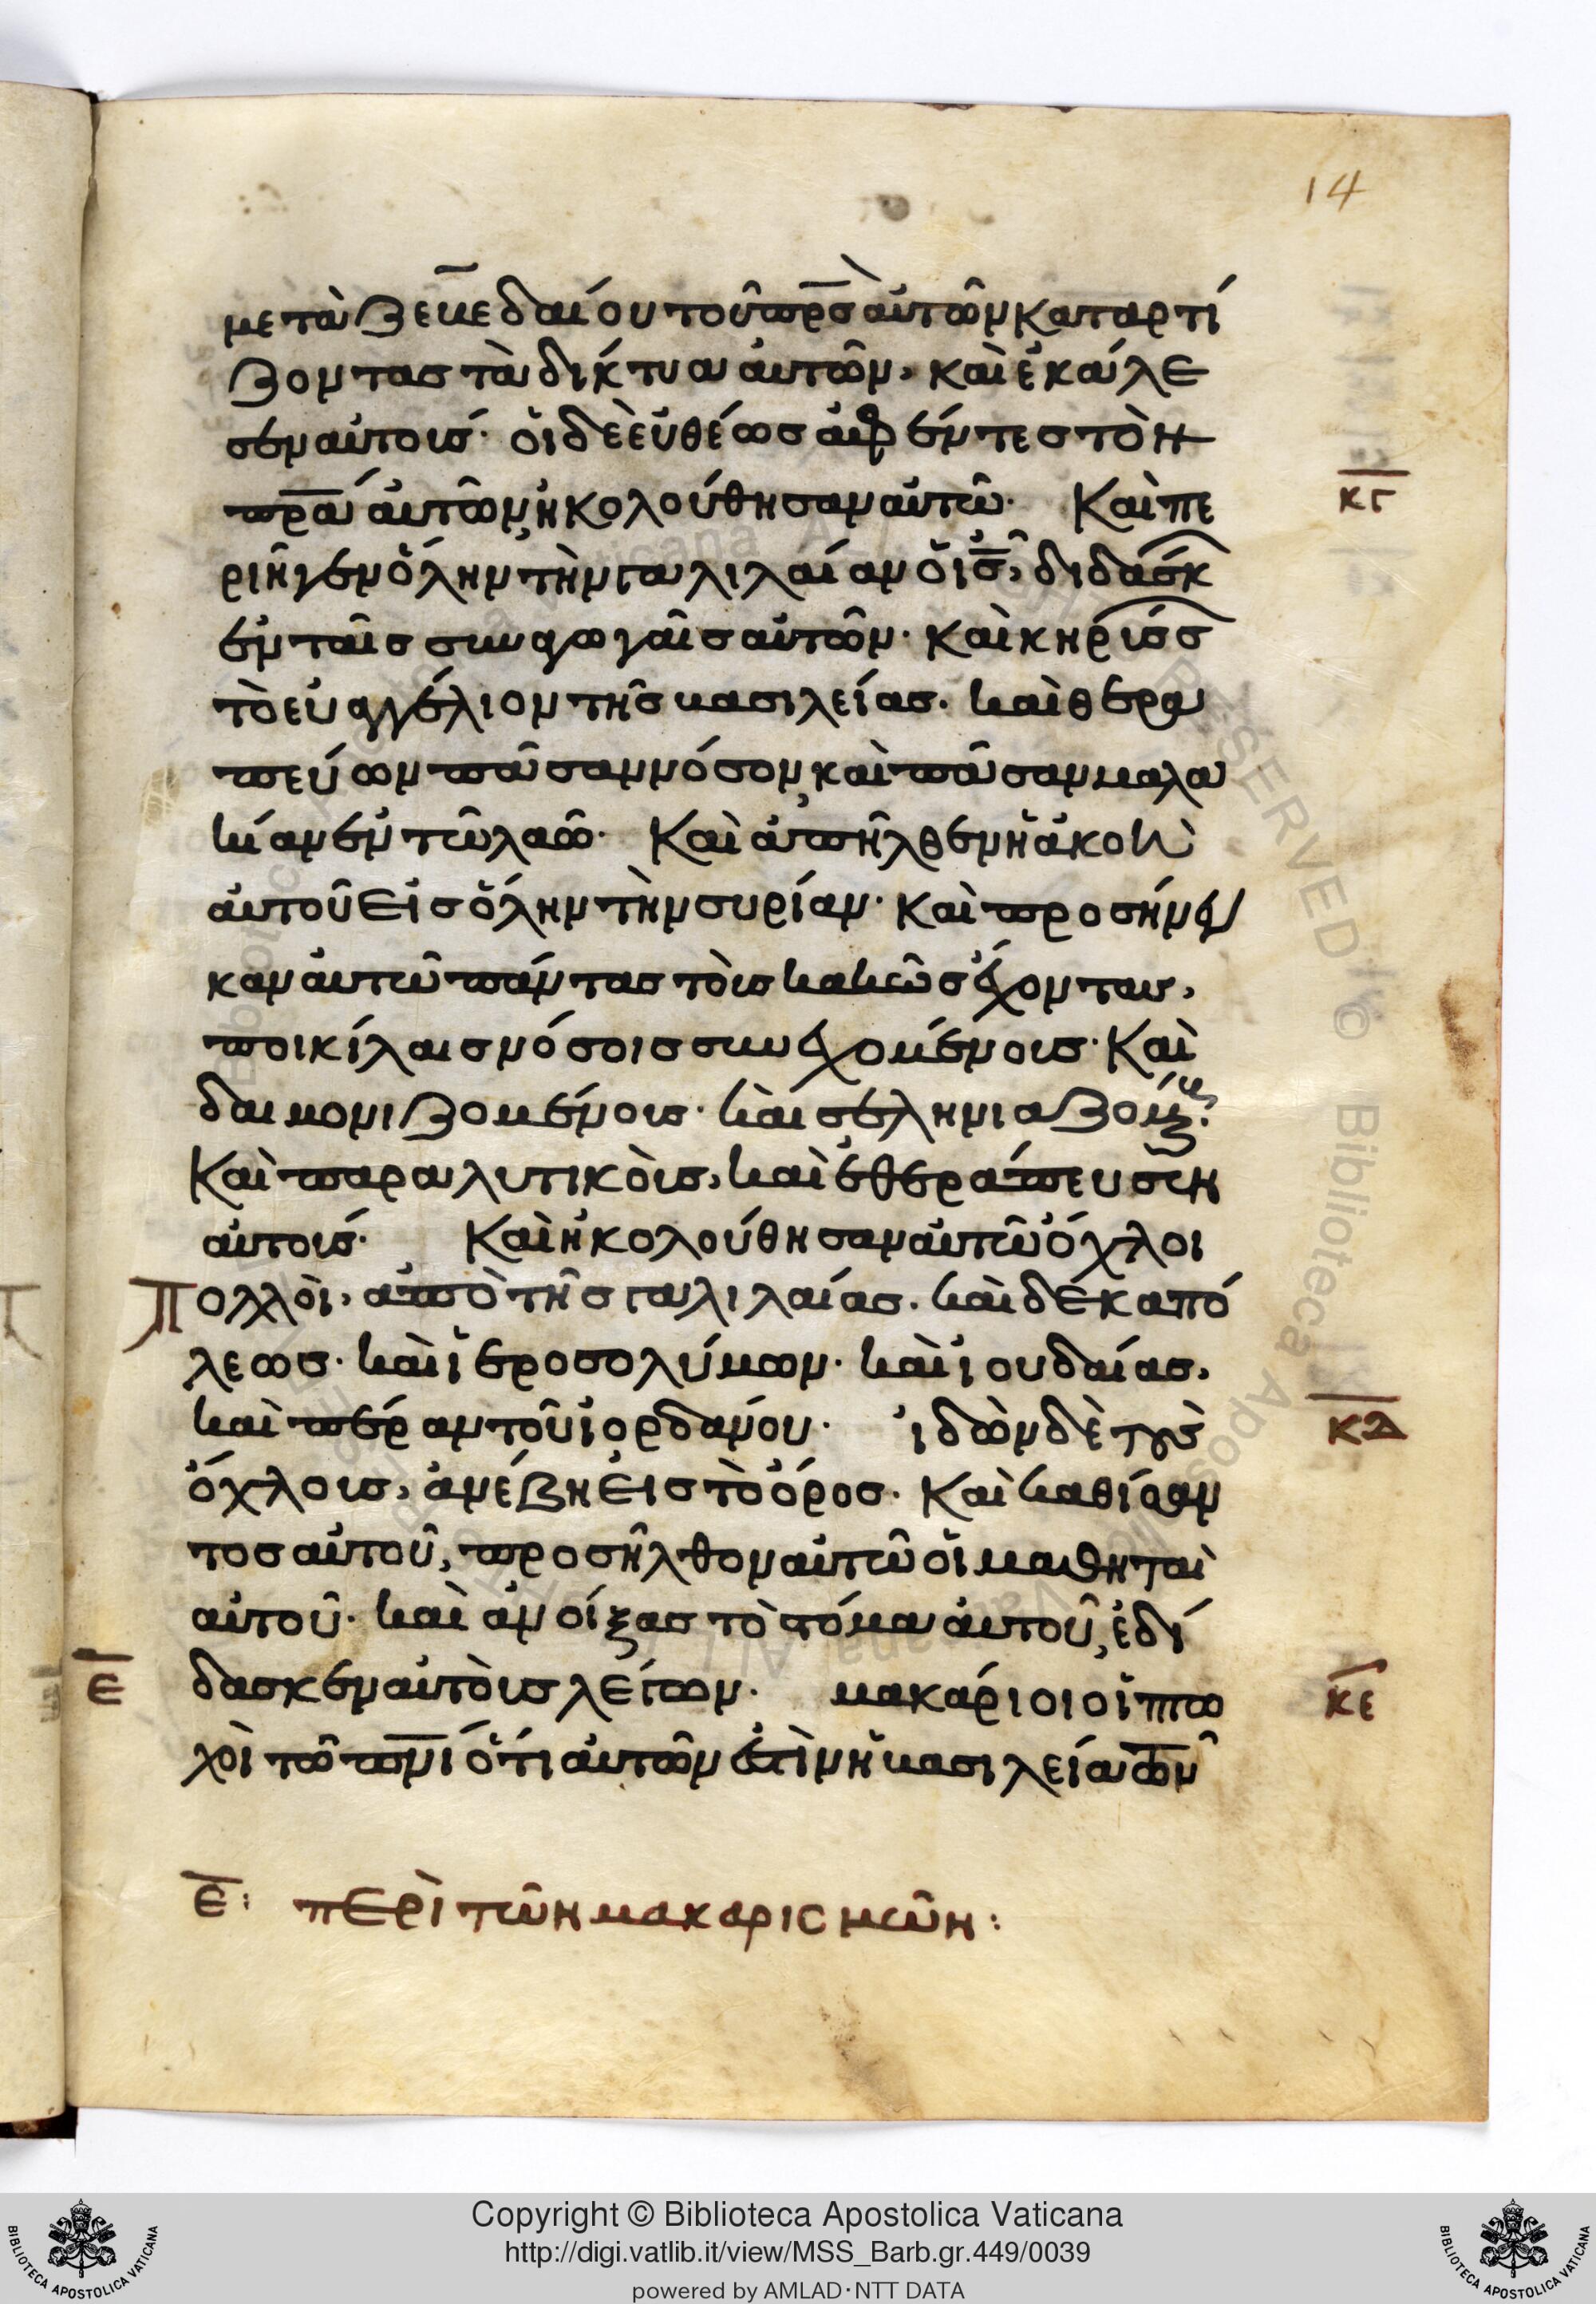 14
μετὰ Ζεβεδαίου τοῦ πρ̅σ̅ αὐτῶν καταρτί
ζοντας τὰ δίκτυα αὐτῶν, καὶ ἐκάλε
σεν αὐτούς· οἱ δὲ εὐθέως ἀφέντες τὸν
πρ̅α̅ αὐτῶν, ἠκολούθησαν αὐτῶ· Καὶ πε
κγ
ριῆγεν ὅλην τὴν γαλιλαίαν ὁ ι̅σ̅, διδάσκ
ἐν ταῖς συναγωγαῖς αὐτῶν· καὶ κηρύσσ
τὸ εὐαγγέλιον τῆς βασιλείας. καὶ θερα
πεύων πᾶσαν νόσον, καὶ πᾶσαν μαλα
κίαν ἐν τῶ λαῶ· Καὶ ἀπῆλθεν ἡ ἀκοὴ
αὐτοῦ εἰς ὅλην τὴν συρίαν· καὶ προσήνεγ
καν αὐτῶ πάντας τοὺς κακῶς ἔχοντας,
ποικίλαις νόσοις συνεχομένους· Καὶ
δαιμονιζομένους· καὶ σεληνιαζομένους·
Καὶ παραλυτικοὺς, καὶ ἐθεράπευσεν
αὐτούς· Καὶ ἠκολούθησαν αὐτῶ ὄχλοι
Πολλοὶ, ἀπὸ τῆς γαλιλαίας. καὶ δεκαπό
λεως· καὶ ἱεροσολύμων· καὶ ἰουδαίας,
καὶ πέραν τοῦ ἰορδάνου· ἰδὼν δὲ τοὺς
κδ
ὄχλους, ἀνέβη εἰς τὸ ὄρος. Καὶ καθίσαν
τος αὐτοῦ, προσῆλθον αὐτῶ οἱ μαθηταὶ
αὐτοῦ· καὶ ἀνοίξας τὸ στόμα αὐτοῦ, ἐδί
ε̅ δασκεν αὐτοὺς λέγων· μακάριοι οἱ πτω
κε
χοὶ τῶ πν̅ι̅ ὅτι αὐτῶν ἐστὶν ἡ βασιλεία τῶν
ε̅: περὶ τῶν μακαρισμῶν:
Copyright © Biblioteca Apostolica Vaticana
http://digi.vatlib.it/view/MSS_Barb.gr.449/0039
powered by AMLAD·NTT DATA
BIBLIOTECA APOSTOLICA VATICANA
BIBLIOTECA APOSTOLICA VATICANA